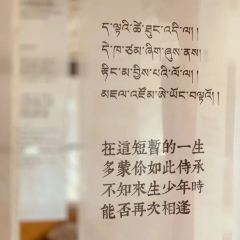 ད་ལྟའི་ཚེ་ཐུང་འདི་ལ། །
དེ་ཁ་ཙམ་ཞིག་ཞུས་ནས།
རྟིང་མ་བྱིས་པའི་ལོ་ལ། །
མཇལ་འཛོམ་ཨེ་ཡོང་བལྟའོ། །
在這短暫的一生
多蒙你如此侍承
不知來生少年時
能否再次相逢